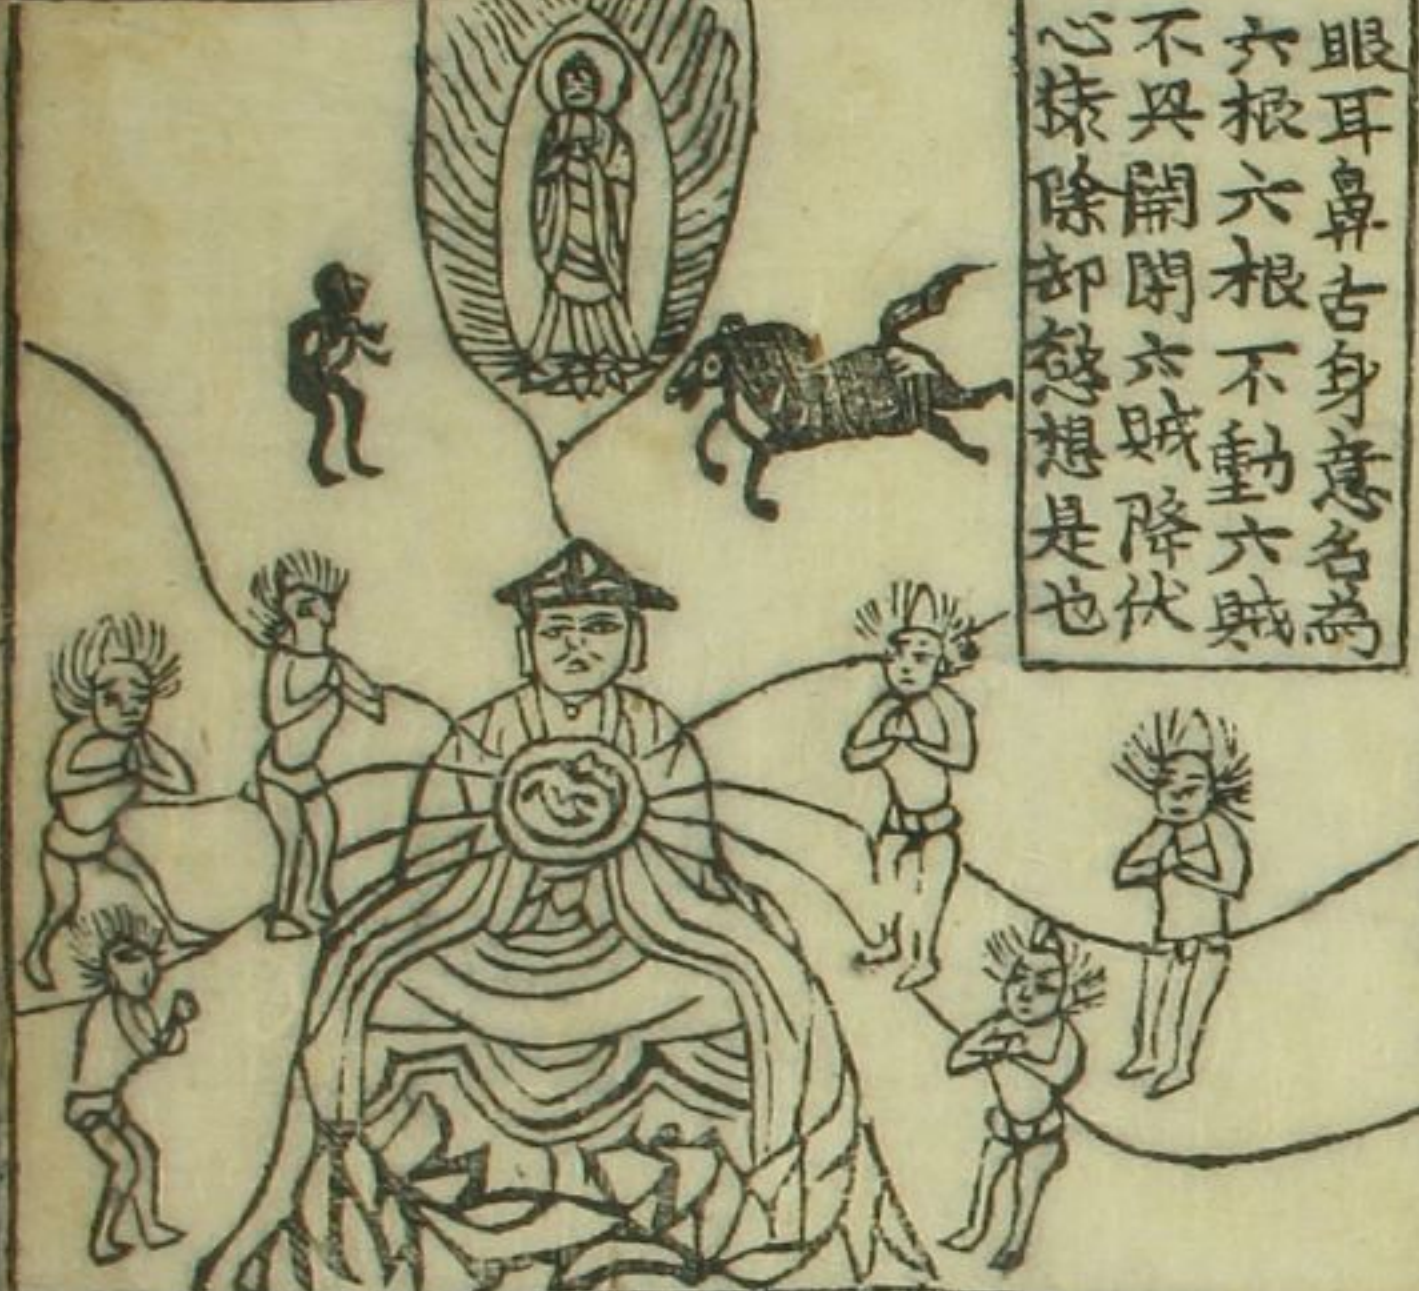 眼耳鼻舌身意名為
六根六根不動六賊
不與開閉六賊降伏
心猿除却慾想是也